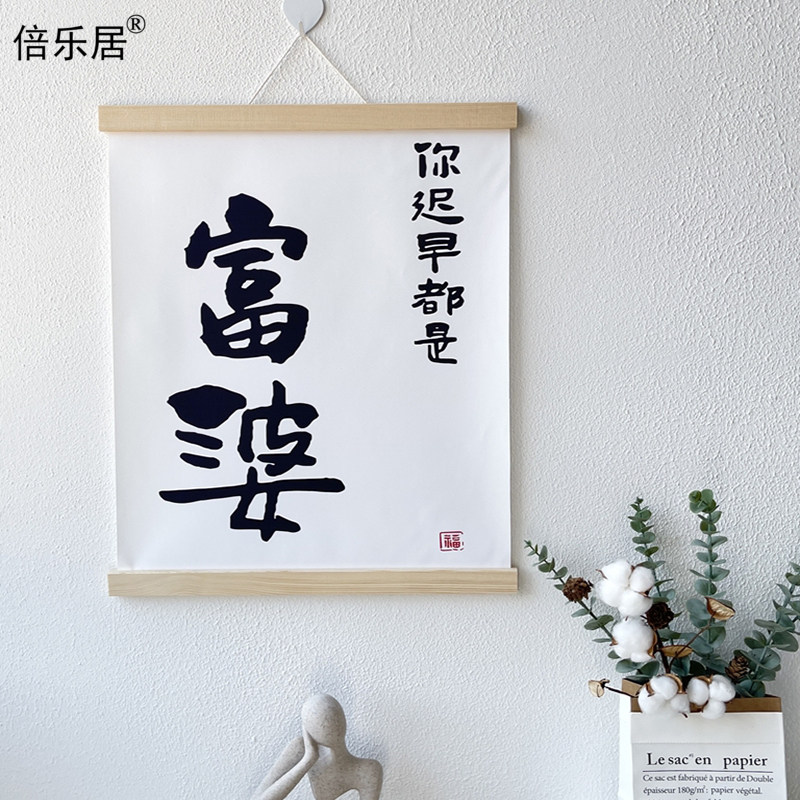 倍乐居®
你迟早都是
富婆
福
Le sac en papier
Ce sac est fabriqué à partir de Double
épaisseur 180g/m²: papier végétal.